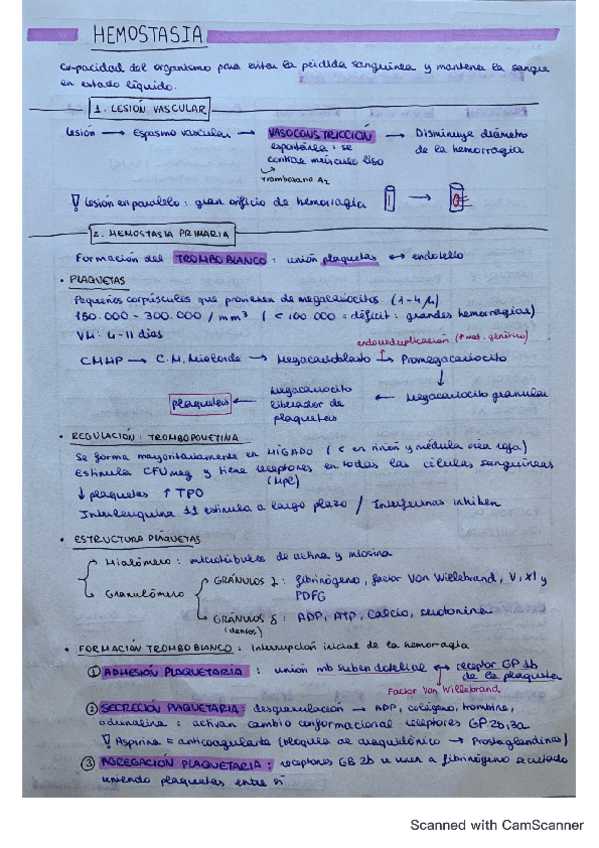 HEMOSTASIA
Capacidad del organismo para evitar la pérdida sanguínea y mantener la sangre
en estado líquido.
1. LESIÓN VASCULAR
Lesión → Espasmo vascular → VASOCONSTRICCIÓN → Disminuye diámetro
espontánea: se de la hemorragia
contrae músculo liso
Tromboxano A2
! Lesión en paralelo: gran orificio de hemorragia →
2. HEMOSTASIA PRIMARIA
Formación del TROMBO BLANCO: unión plaquetas ↔ endotelio
• PLAQUETAS
Pequeños corpúsculos que provienen de megacariocitos (1-4 μ)
150.000 - 300.000 / mm³ (< 100.000 = déficit: grandes hemorragias)
VM: 4-11 días
endoreduplicación (↑ mat. genético)
CMHP → C.M. Mieloide → Megacarioblasto → Promegacariocito
↓
plaquetas ← Megacariocito liberador de plaquetas ← Megacariocito granular
• REGULACIÓN: TROMBOPOYETINA
Se forma mayoritariamente en HÍGADO (< en riñón y médula ósea roja)
Estimula CFU meg y tiene receptores en todas las células sanguíneas
(Mpl)
↓ plaquetas ↑ TPO
Interleuquina 11 estimula a largo plazo / Interferonas inhiben
• ESTRUCTURA PLAQUETAS
Hialómero: microtúbulos de actina y miosina
Granulómero
GRÁNULOS α: fibrinógeno, factor Von Willebrand, V, XI y
PDFG
GRÁNULOS δ: ADP, ATP, Calcio, serotonina
(densos)
• FORMACIÓN TROMBO BLANCO: interrupción inicial de la hemorragia
① ADHESIÓN PLAQUETARIA: unión mb subendotelial ↔ receptor GP 1b
de la plaqueta
Factor Von Willebrand
② SECRECIÓN PLAQUETARIA: desgranulación → ADP, colágeno, trombina,
adrenalina: activan cambio conformacional receptores GP 2b, 3a
! Aspirina = anticoagulante (bloquea ac araquidónico → Prostaglandinas)
③ AGREGACIÓN PLAQUETARIA: receptores GB 2b se unen a fibrinógeno secretado
uniendo plaquetas entre sí
Scanned with CamScanner